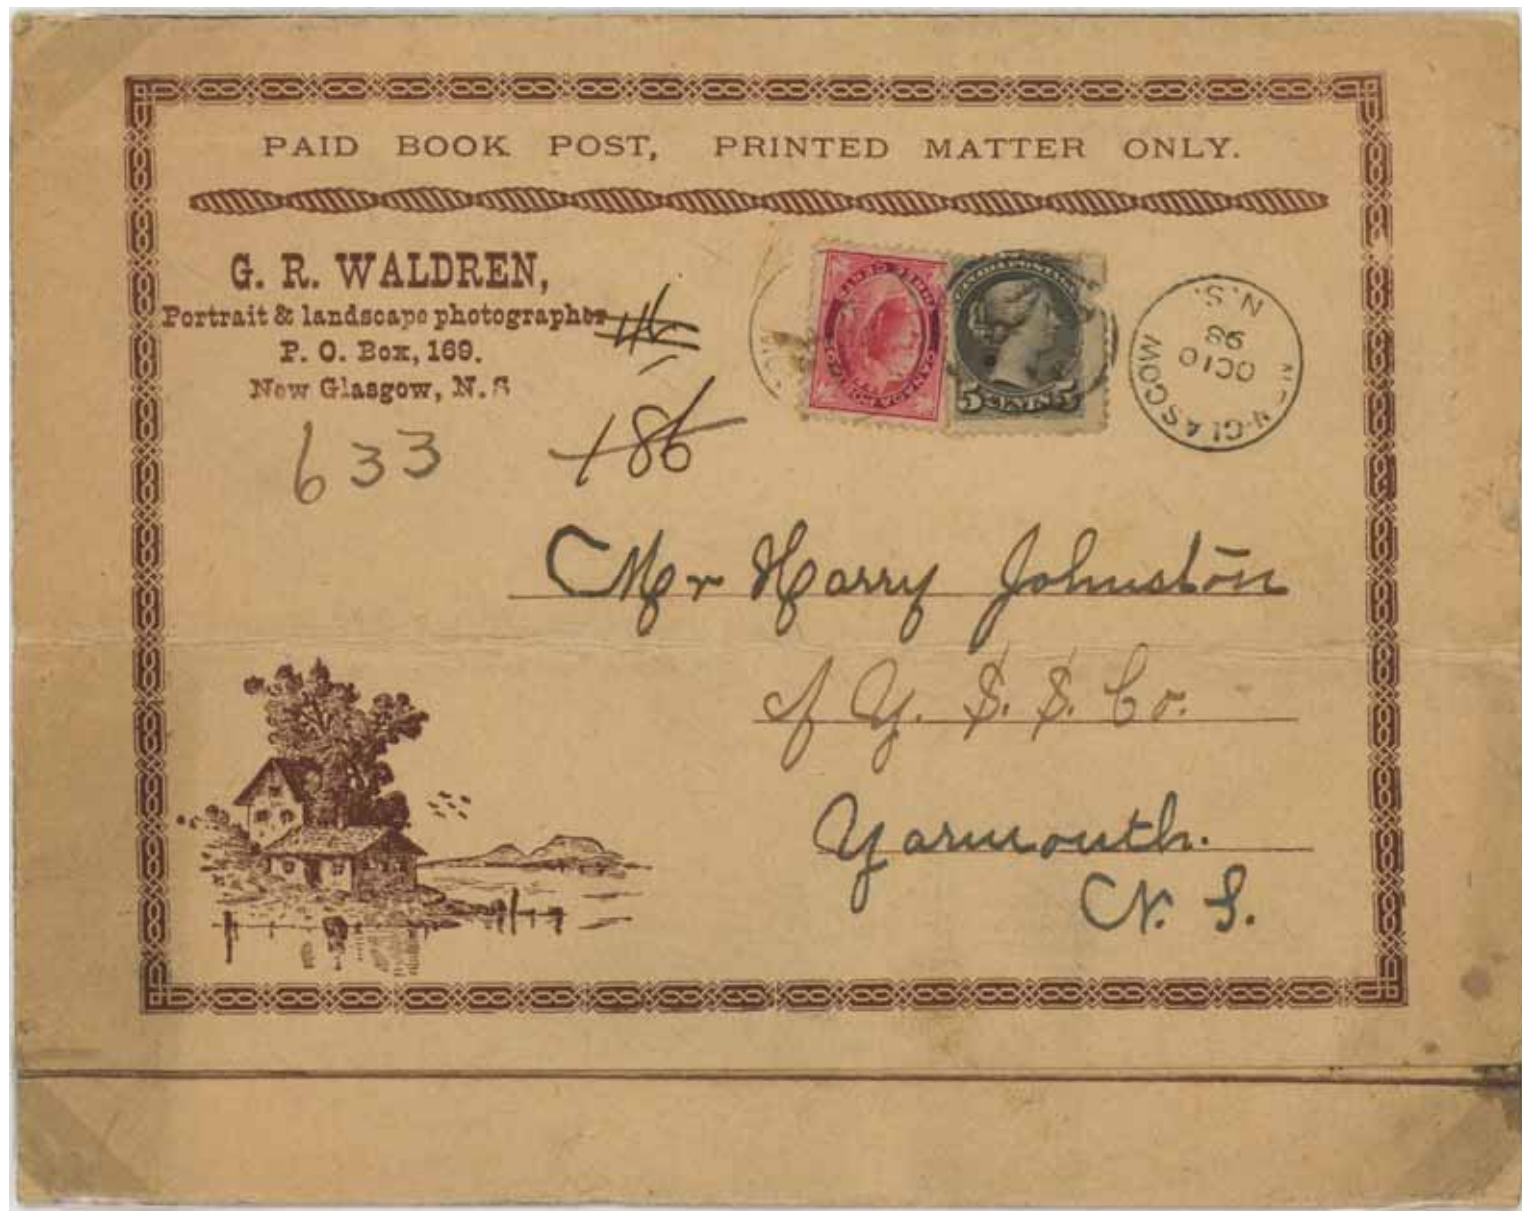 PAID BOOK POST, PRINTED MATTER ONLY.
G. R. WALDREN,
Portrait & landscape photographer
P. O. Box, 169.
New Glasgow, N.S
633
186
5 CENTS 5
NEW-GLASGOW
OC 10
98
N.S.
Mr Harry Johnston
of Y. S. S. Co.
Yarmouth.
N. S.